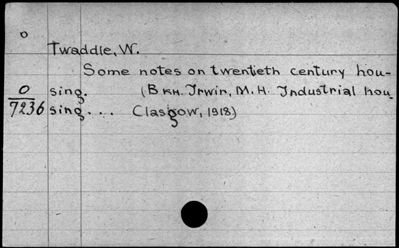 0
Twaddle, W.
Some notes on twentieth century hou-
0 sing. (В кн. Irwin, M. H. Industrial hou
7236 sing... Clasgow, 1918)